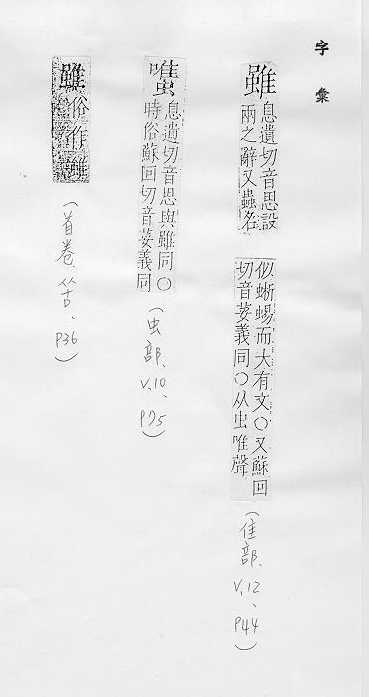 字彙
雖
息遺切音思設
兩之辭又蟲名
似蜥蜴而大有文〇又蘇回
切音荽義同〇从虫唯聲
(隹部、V.12、P44)
息遺切音思與雖同〇
時俗蘇回切音荽義同
(虫部、V.10、P75)
雖俗作
(首卷、P36)